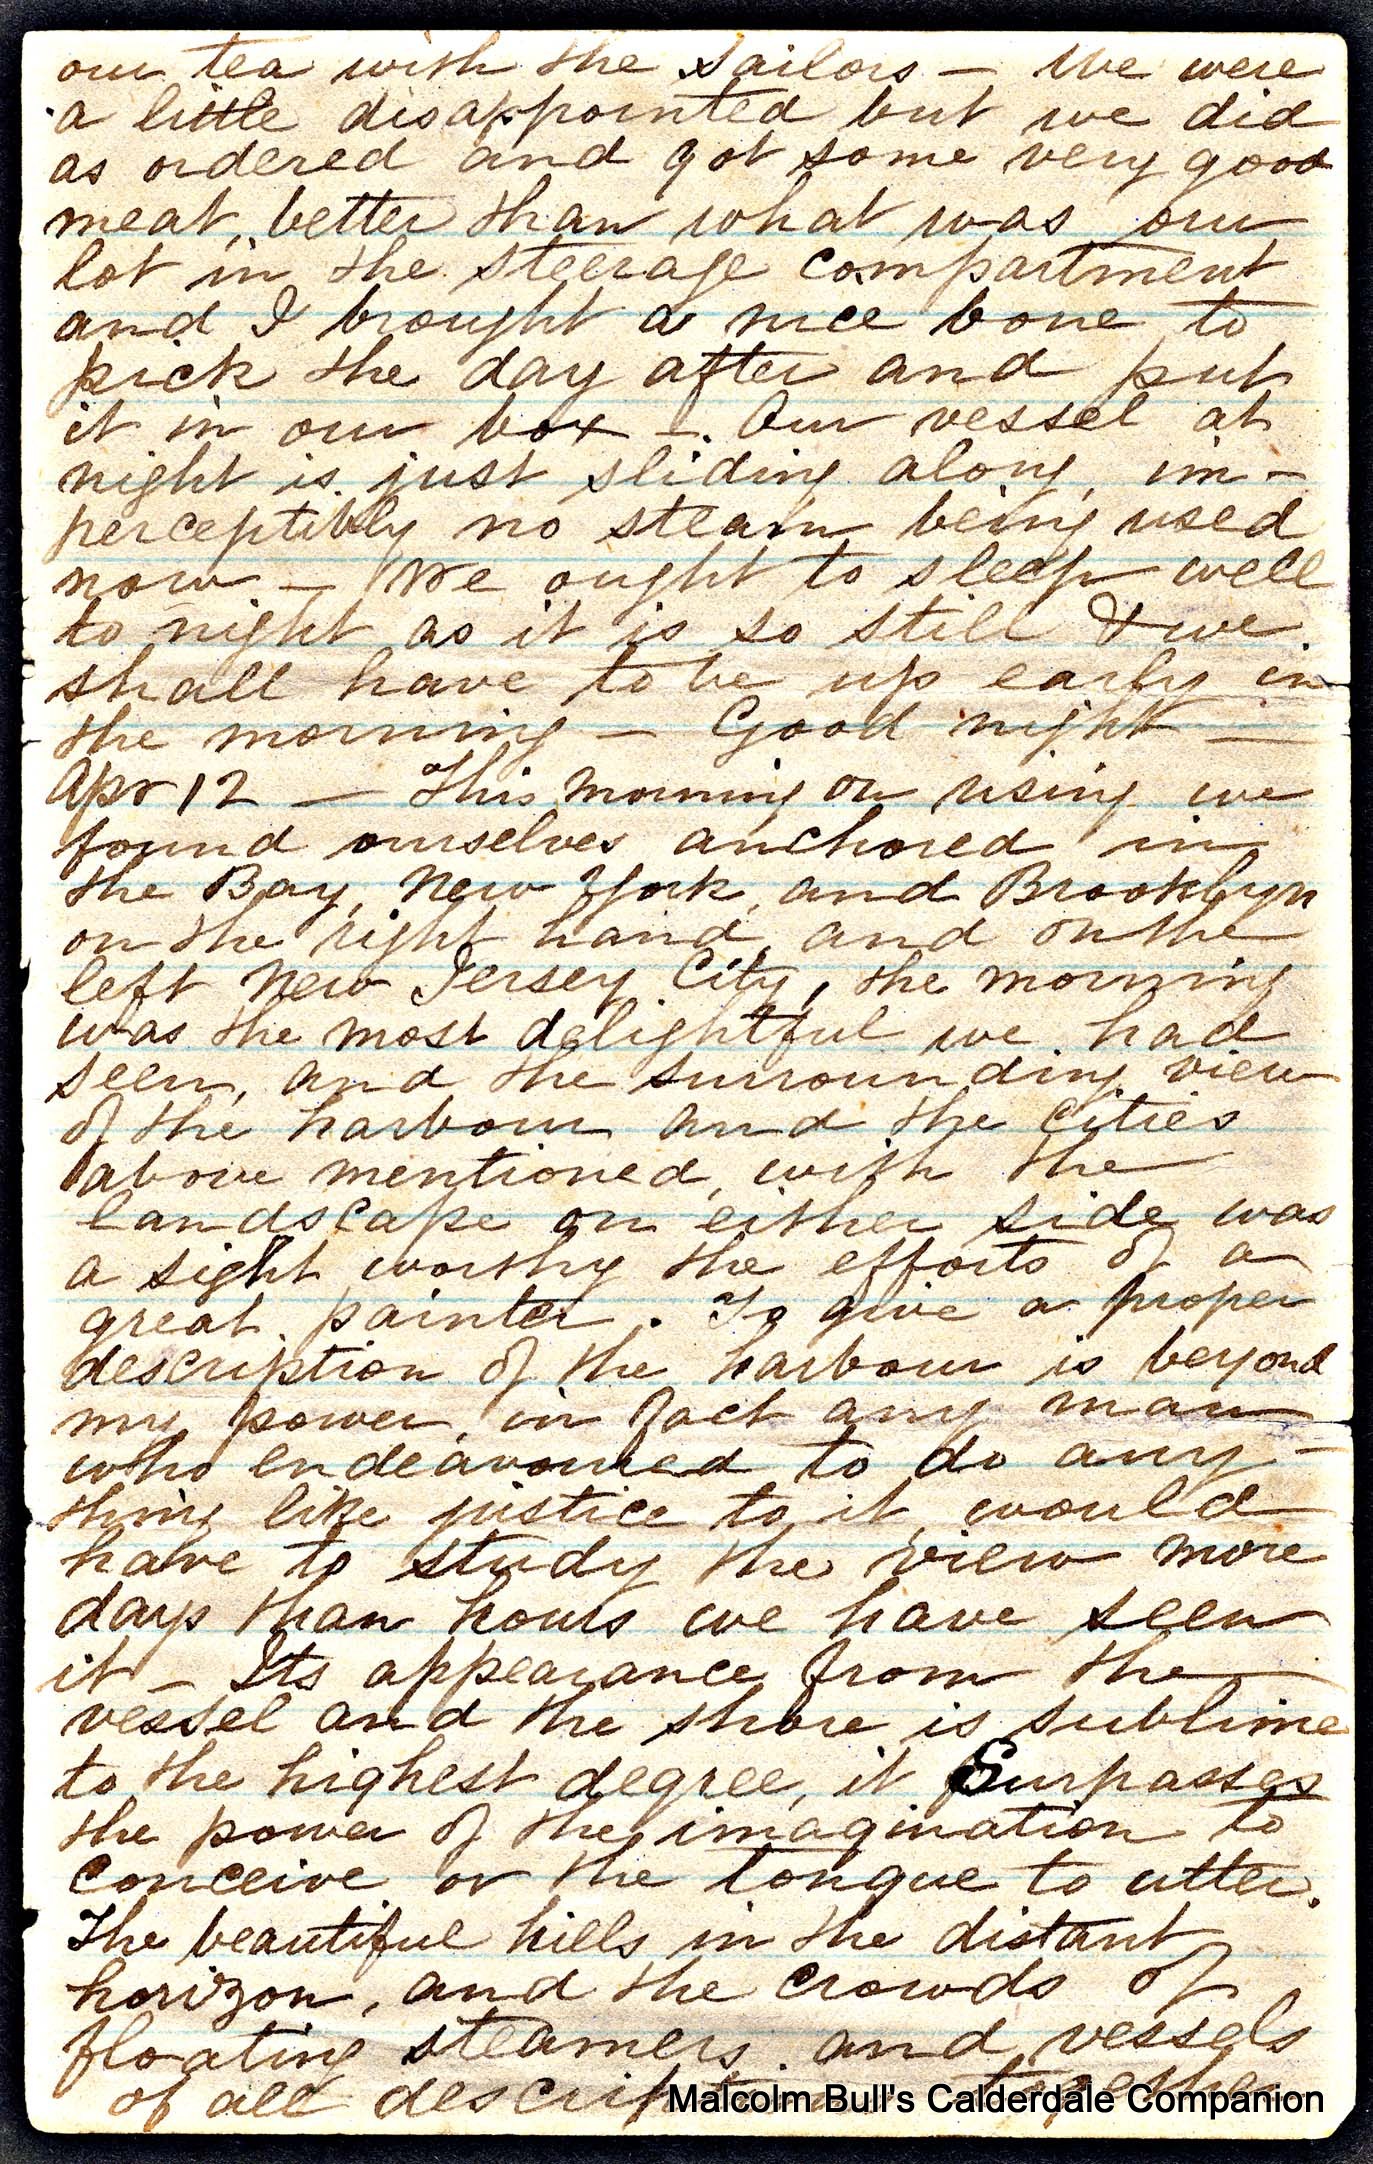 our tea with the sailors — We were
a little disappointed but we did
as ordered and got some very good
meat, better than what was our
lot in the steerage compartment
and I brought a nice bone to
pick the day after and put
it in our box —. Our vessel at
night is just sliding along, im-
perceptibly no steam being used
now — We ought to sleep well
to night as it is so still & we
shall have to be up early in
the morning — Good night —
Apr 12 — This morning on rising we
found ourselves anchored in
the Bay, New York, and Brooklyn
on the right hand, and on the
left New Jersey City, the morning
was the most delightful we had
seen, and the surrounding view
of the harbour and the cities
above mentioned, with the
landscape on either side was
a sight worthy the efforts of a
great painter. To give a proper
description of the harbour is beyond
my power, in fact any man
who endeavoured to do any-
thing like justice to it, would
have to study the view more
days than hours we have seen
it — Its appearance from the
vessel and the shore is sublime
to the highest degree, it Surpasses
the power of the imagination to
conceive or the tongue to utter.
The beautiful hills in the distant
horizon, and the crowds of
floating steamers and vessels
of all description together
Malcolm Bull's Calderdale Companion